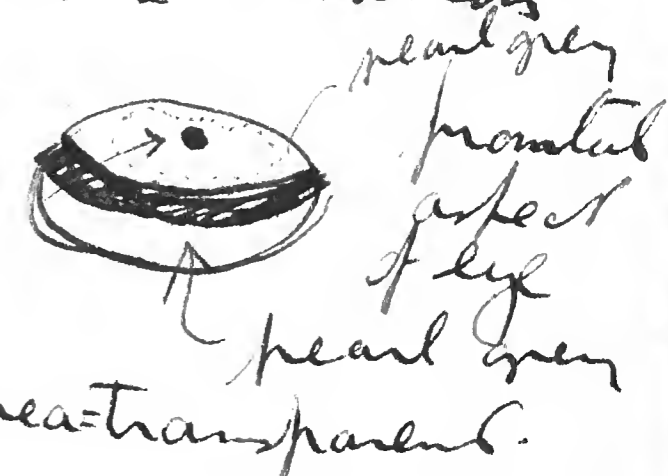 pearl grey
frontal
aspect
of eye
pearl grey
nea=transparent.